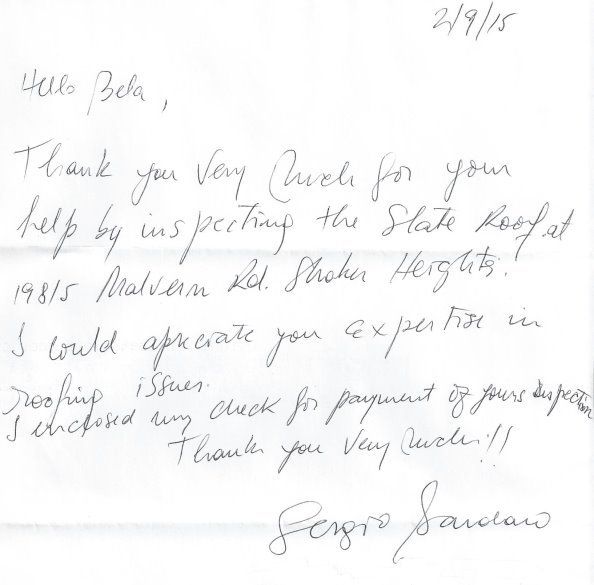 2/9/15
Hello Bela,
Thank you Very Much for your
help by inspecting the Slate Roof at
19815 Malvern Rd. Shaker Heights.
I could apreciate you expertise in
roofing issues.
I enclosed my check for payment of yours inspection
Thank you Very Much!!
Sergio